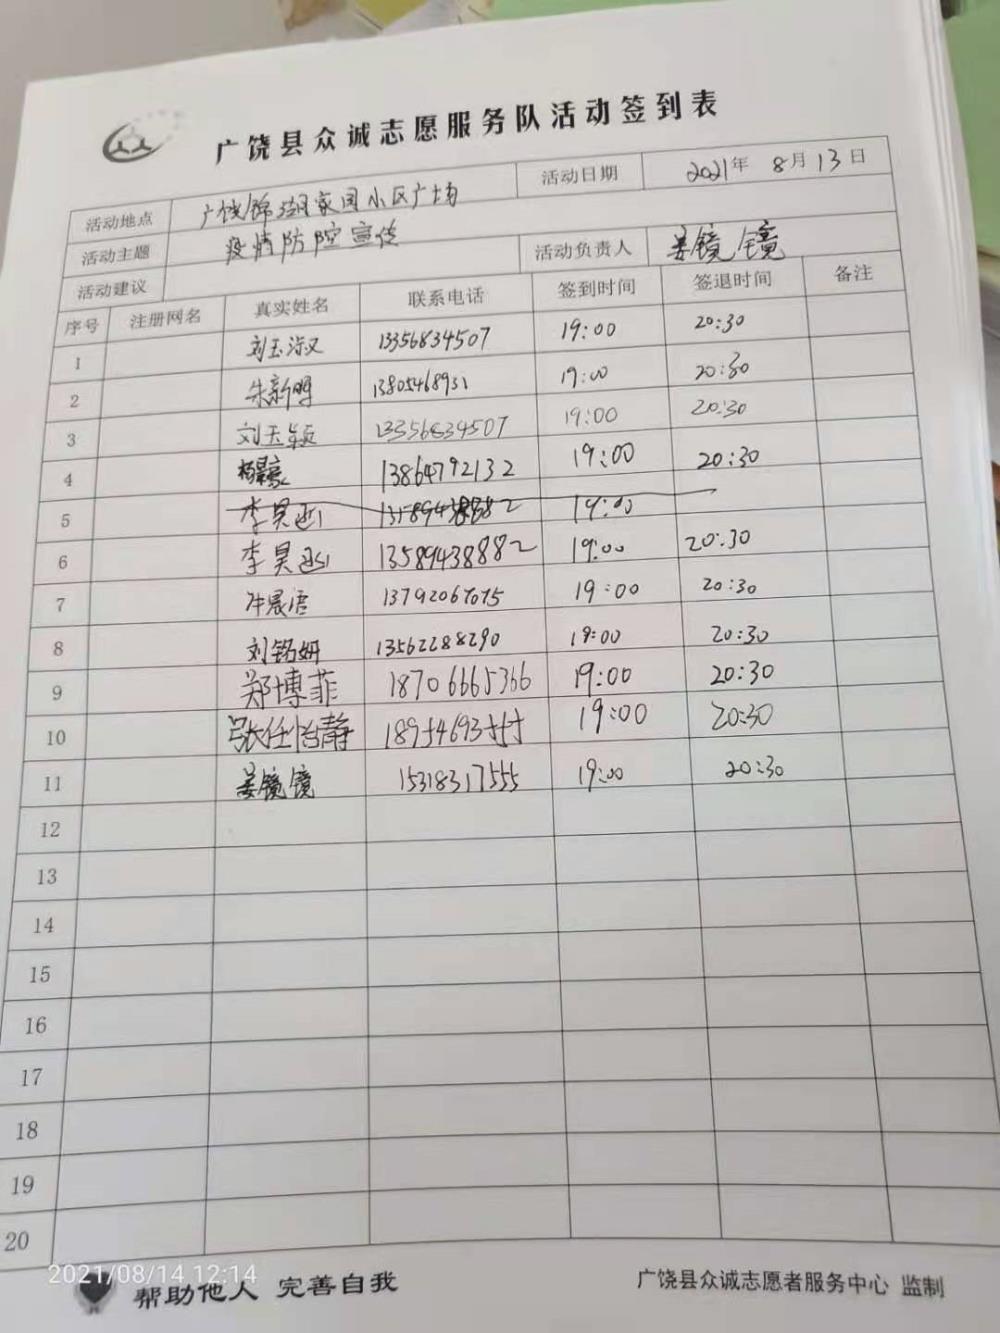 广饶县众诚志愿服务队活动签到表
活动地点 广饶锦湖家园小区广场 活动日期 2021年 8月13日
活动主题 疫情防控宣传 活动负责人 姜镜镜
活动建议
序号 注册网名 真实姓名 联系电话 签到时间 签退时间 备注
1 刘玉淑 13356834507 19:00 20:30
2 朱新明 13805468931 19:00 20:30
3 刘玉颖 13356834507 19:00 20:30
4 13864792132 19:00 20:30
5 李昊 19:00
6 李昊 13589438882 19:00 20:30
7 晨语 19:00 20:30
8 刘铭妍 13562288290 19:00 20:30
9 郑博菲 18706665366 19:00 20:30
10 张任怡静 19:00 20:30
11 姜镜镜 15318317555 19:00 20:30
12
13
14
15
16
17
18
19
20
2021/08/14 12:14
帮助他人 完善自我 广饶县众诚志愿者服务中心 监制